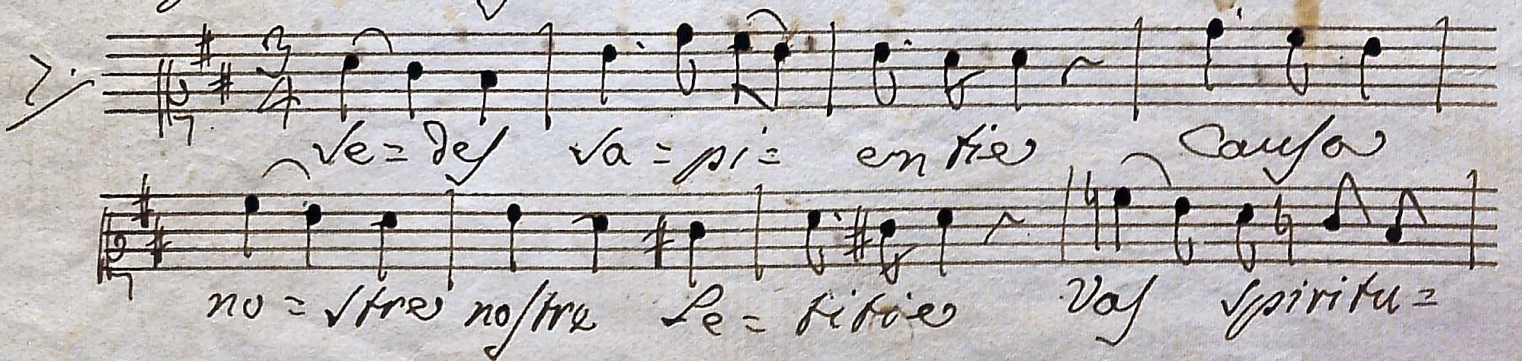 7.
3/4
Se= des Sa= pi= en tie Causa
no= stre nostre Le= titie Vas Spiritu=